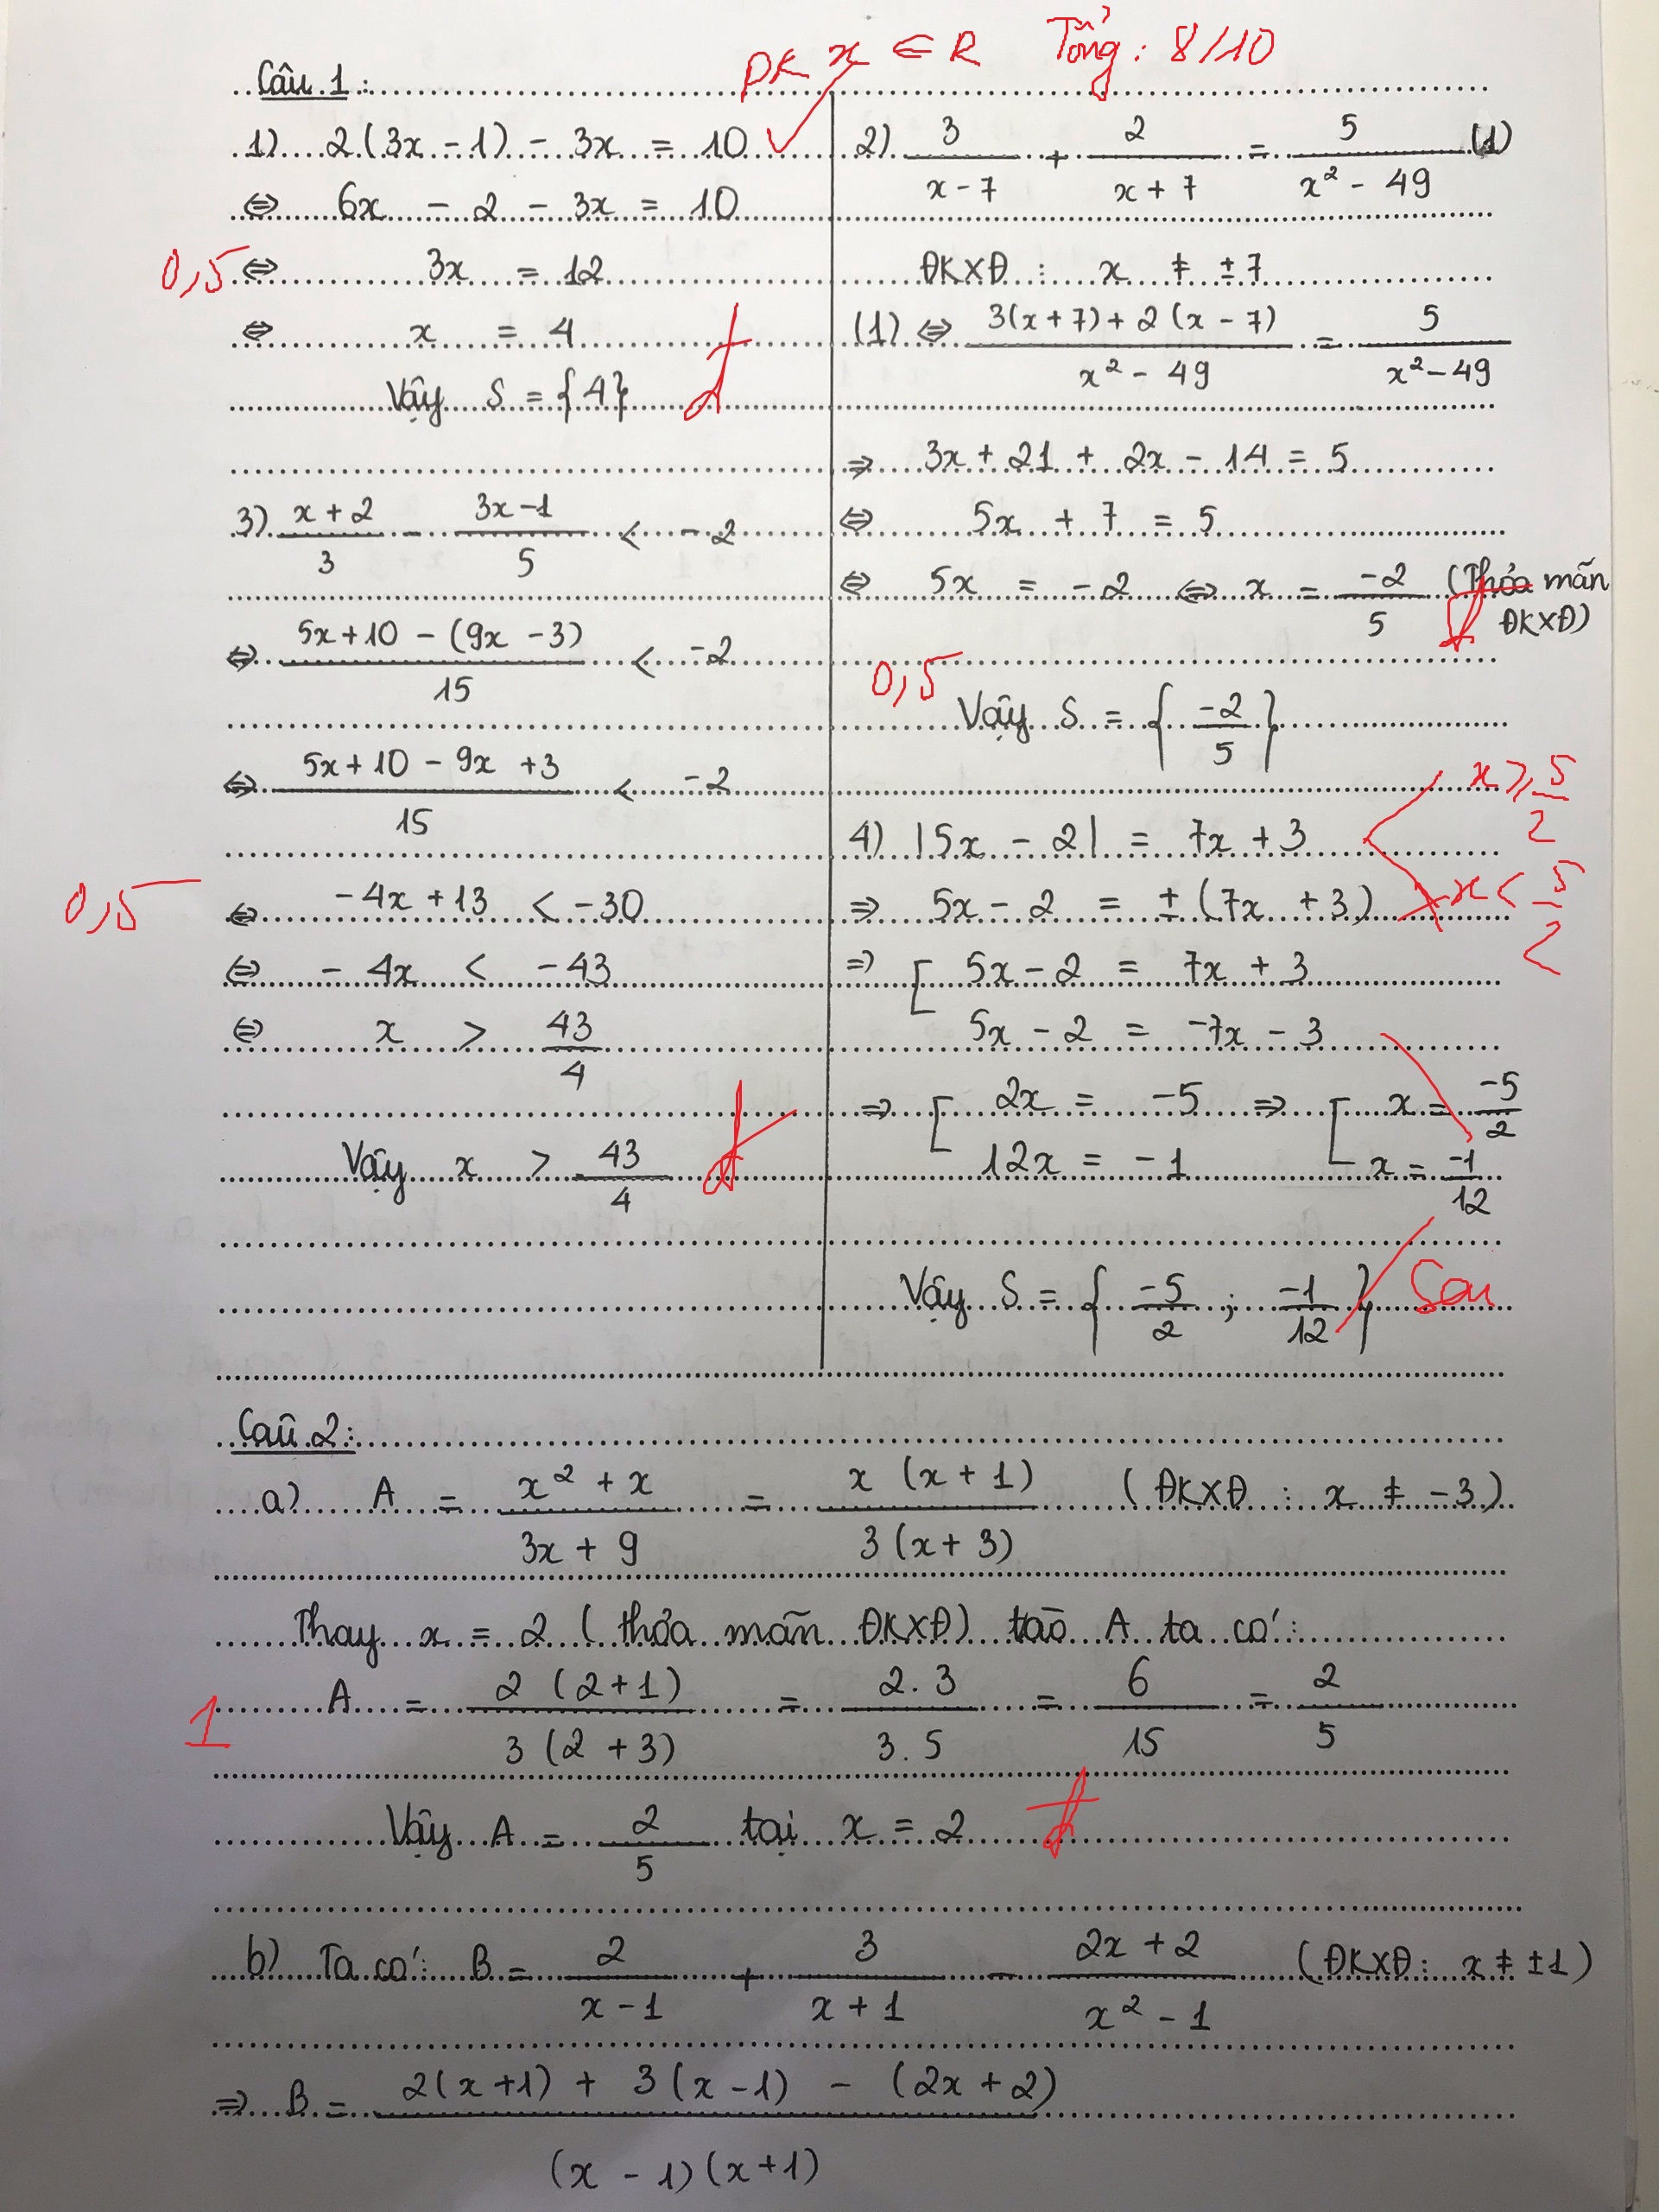 ĐK x ∈ R Tổng: 8/10
Câu 1:
1) 2(3x - 1) - 3x = 10
⇔ 6x - 2 - 3x = 10
0,5 ⇔ 3x = 12
⇔ x = 4
Vậy S = {4}
đ
3) (x + 2)/3 - (3x - 1)/5 < -2
⇔ (5x + 10 - (9x - 3))/15 < -2
⇔ (5x + 10 - 9x + 3)/15 < -2
0,5 ⇔ -4x + 13 < -30
⇔ - 4x < -43
⇔ x > 43/4
Vậy x > 43/4
đ
2) 3/(x - 7) + 2/(x + 7) = 5/(x² - 49) (1)
ĐKXĐ : x ≠ ±7
(1) ⇔ (3(x + 7) + 2(x - 7))/(x² - 49) = 5/(x² - 49)
⇒ 3x + 21 + 2x - 14 = 5
⇔ 5x + 7 = 5
⇔ 5x = -2 ⇔ x = -2/5 (Thỏa mãn
ĐKXĐ)
đ
0,5
Vậy S = { -2/5 }
4) |5x - 2| = 7x + 3
x ⩾ 5/2
⇒ 5x - 2 = ± (7x + 3)
x < 5/2
⇒ [ 5x - 2 = 7x + 3
5x - 2 = -7x - 3
⇒ [ 2x = -5 ⇒ [ x = -5/2
12x = -1 x = -1/12
Vậy S = { -5/2 ; -1/12 } Sai
Câu 2:
a) A = (x² + x)/(3x + 9) = x (x + 1)/3 (x + 3) (ĐKXĐ : x ≠ -3)
Thay x = 2 (thỏa mãn ĐKXĐ) vào A ta có:
1 A = 2 (2 + 1)/3 (2 + 3) = 2.3/3.5 = 6/15 = 2/5
Vậy A = 2/5 tại x = 2 đ
b) Ta có: B = 2/(x - 1) + 3/(x + 1) - (2x + 2)/(x² - 1) (ĐKXĐ: x ≠ ±1)
⇒ B = (2(x + 1) + 3(x - 1) - (2x + 2))/(x - 1)(x + 1)